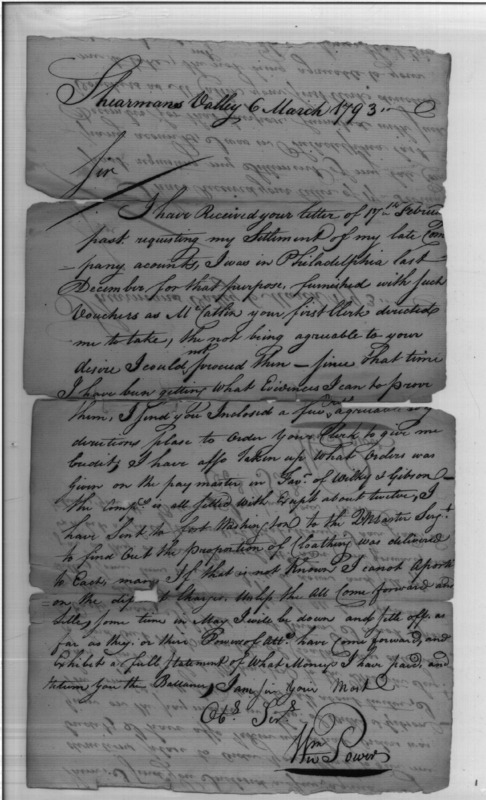 Shearmans Valley 6 March 1793
Sir
I have Received your letter of 17th Febru
past. requesting my Settlment of my late Com
pany acounts, I was in Philadelphia last
December, for that purpose, furnished with such
Vouchers as your first Clerk directed
me to take, tho not being agreuable to your
desire I could not proceed then — since that time
I have been getting what Evidinces I can to prove
them, I find you Inclosed a few
directions please to Order your Clerk to give me
Credit, I have also taken up what Orders was
Given on the pay master in Favr. of Wilky & Gibson
the Compy. is all setled with Exept about twelve, I
have Sent to Fort Washington to the
to find Out the proportion of Cloathing was delivered
to Each man, If that is not Known I canot Aporti
on the Unless the All Come forward and
settle, some time in May I will be down and setle off as
far as they or their Powers of Atty. have Come forward, and
Exhibet a full statement of What Money I have paid, and
return you the Ballance, I am Sir Your Most
Obt. Sert.
Wm Power